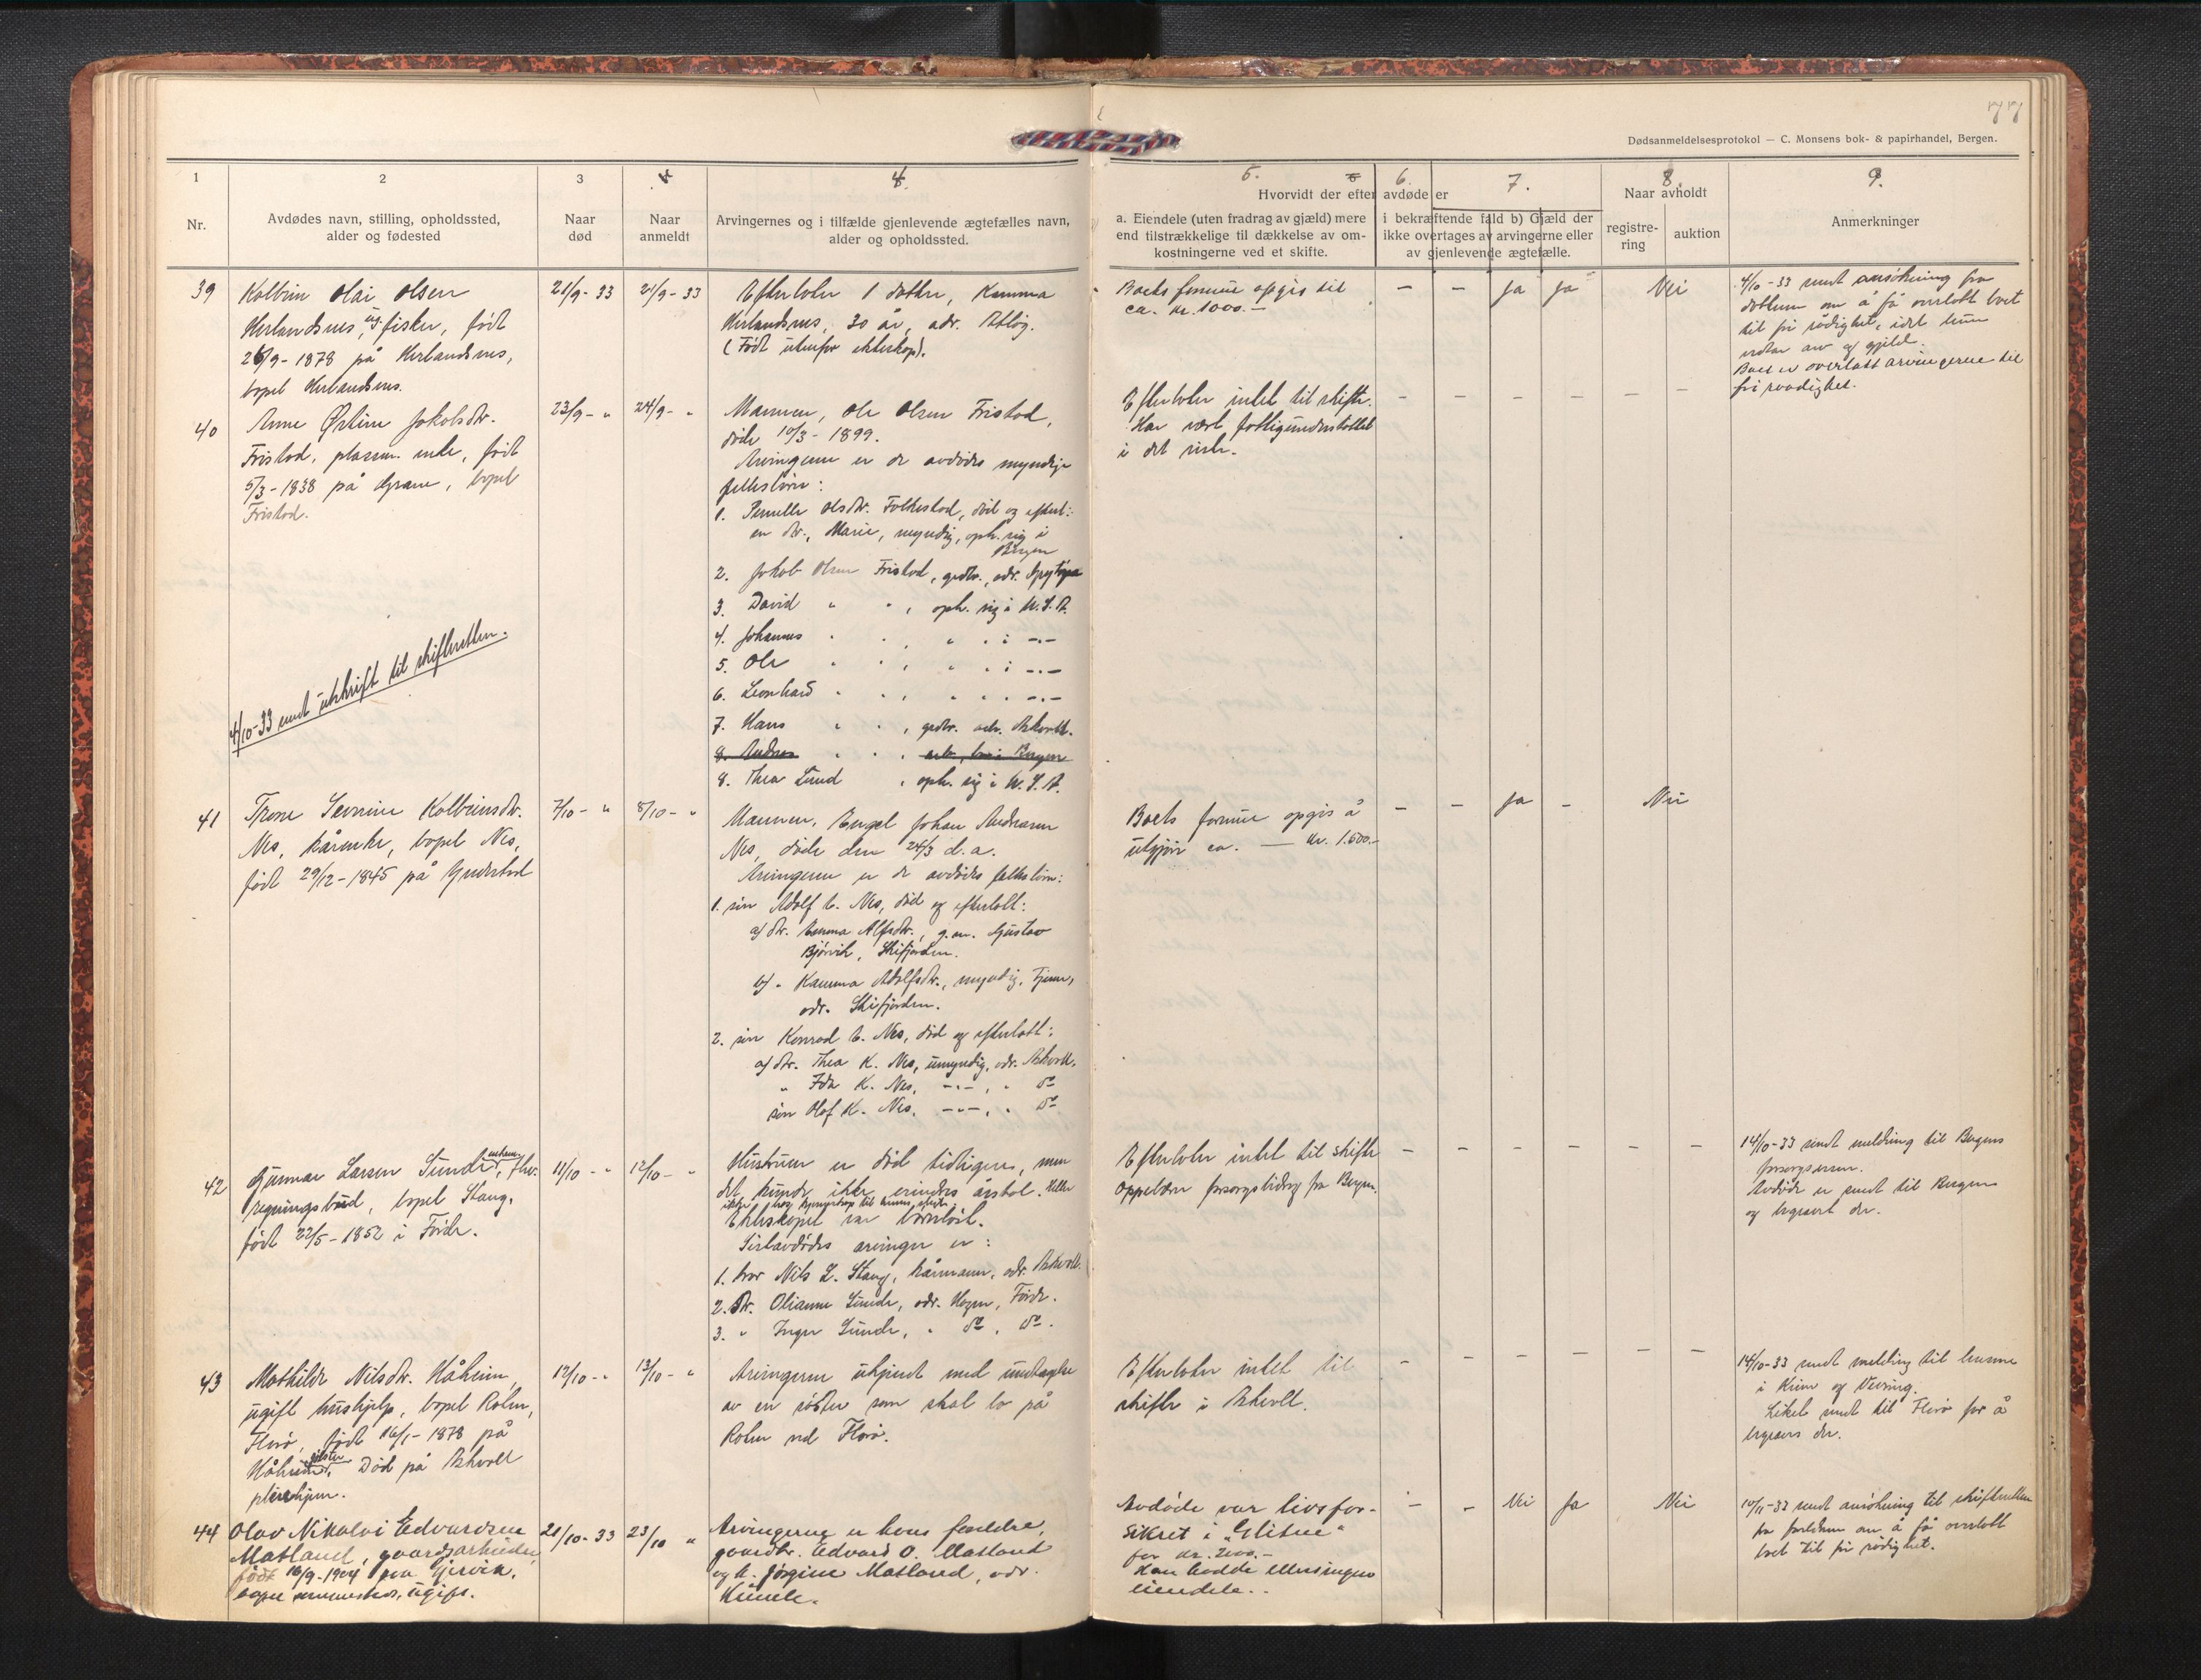 77
Dødsanmeldelsesprotokol — C. Monsens bok- & papirhandel, Bergen.
1
2
3
4.
5.
6.
7.
8.
9.
Nr.
Avdødes navn, stilling, opholdssted,
alder og fødested
Naar
død
Naar
anmeldt
Arvingernes og i tilfælde gjenlevende ægtefælles navn,
alder og opholdssted.
Hvorvidt der efter avdøde er
a. Eiendele (uten fradrag av gjæld) mere
end tilstrækkelige til dækkelse av om-
kostningerne ved et skifte.
i bekræftende fald b) Gjæld der
ikke overtages av arvingerne eller
av gjenlevende ægtefælle.
Naar avholdt
registre-
ring
auktion
Anmerkninger
39
Kolbein Olai Olsen
Herlandsnes, ug. fisker, født
26/9-1878 på Herlandsnes,
bopel Herlandsnes.
21/9-33
21/9-33
Efterlater 1 datter, Kamma
Herlandsnes, 30 år, adr. Atløy.
(Født utenfor ekteskap).
Boets formue opgis til
ca. kr. 1000.—
— — ja ja Nei
4/10-33 sendt ansøkning fra
datteren om å få overlatt boet
til fri rådighet, idet hun
vedtar arv og gjeld.
Boet er overlatt arvingerne til
fri raadighet.
40
Anne Østine Jakobsdtr.
Fristad, plassm. enke, født
5/3-1838 på Grane, bopel
Fristad.
23/9- "
24/9- "
Mannen, Ole Olsen Fristad,
døde 10/3-1899.
Arvingerne er de avdødes myndige
fellesbørn:
1. Pernille Olsdtr. Folkestad, død og efterl.:
en dtr., Marie, myndig, oph. sig i
Bergen
2. Jakob Olsen Fristad, grdbr., adr.
3. David " " , oph. sig i U.S.A.
4. Johannes " " , " " i -"-
5. Ole " " , " " i -"-
6. Leonhard " " , " " -"-
7. Hans " " , grdbr. adr. Askvoll.
8. Andreas " " , arb., bor i Bergen
8. Thea Lund , oph. sig i U.S.A.
Efterlater intet til skifte.
Har vært fattigunderstøttet
i det siste.
— — — — — —
4/10-33 sendt utskrift til skifteretten.
41
Trone Severine Kolbeinsdtr.
Nes, kårenke, bopel Nes,
født 29/12-1845 på Yndestad
7/10- "
8/10- "
Mannen, Engel Johan Andreasen
Nes, døde den 24/3 d.a.
Arvingerne er de avdødes fellesbørn:
1. søn Adolf E. Nes, død og efterlatt:
a) dtr. Emma Alfsdtr., g.m. Gustav
Bjørvik, Skifjorden.
b) " Kamma Adolfsdtr., myndig,
adr. Skifjorden.
2. søn Konrad E. Nes, død og efterlatt:
a) dtr. Thea K. Nes, umyndig, adr. Askvoll.
" Ida K. Nes, -"-, " do
søn Olaf K. Nes, -"-, " do
Boets formue opgis å
utgjøre ca. — kr. 1.600.-
— — ja — Nei
42
Gunnar Larsen Sunde, enkem., fhv.
regningsbud, bopel Stang,
født 22/5-1852 i Førde.
11/10- "
12/10- "
Hustruen er død tidligere, men
det kunde ikke erindres årstal. Heller
ikke
Ekteskapet var barnløst.
Sistavdødes arvinger er:
1. bror Nils L. Stang, kårmann, adr. Askvoll.
2. dtr. Olianne Sunde, adr. Hagen, Førde.
3. " Inger Sunde, " do, do.
Efterlater intet til skifte
Oppebar forsorgsbidrag fra Bergen.
— — — — — —
14/10-33 sendt melding til Bergens
forsorgsvesen.
Avdøde er sendt til Bergen
og begravet der.
43
Mathilde Nilsdtr. Håheim,
ugift hushjelp, bopel Rolm,
Florø, født 16/1-1878 på
Håheim, Død på Askvoll
pleiehjem.
12/10- "
13/10- "
Arvingerne ukjendt med undtagelse
av en søster som skal bo på
Rolm ved Florø.
Efterlater intet til
skifte i Askvoll.
— — — — — —
14/10-33 sendt melding til lensm.
i Kinn og Vevring.
Liket sendt til Florø for å
begraves der.
44
Olav Nikolai Edvardsen
Matland, gaardsarbeider,
født 16/9-1904 paa Gjervik,
bopel sammesteds, ugift.
21/10-33
23/10 "
Arvingerne er hans foreldre,
gaardbr. Edvard O. Matland
og h. Jørgine Matland, adr.
Avdøde var livsfor-
sikret i "Glitne"
for kr. 2000.—
Han hadde ellers ingen
eiendele.
— — Nei Ja Nei
10/11-33 sendt ansøkning til skifteretten
fra foreldrene om å få overlatt
boet til fri rådighet.